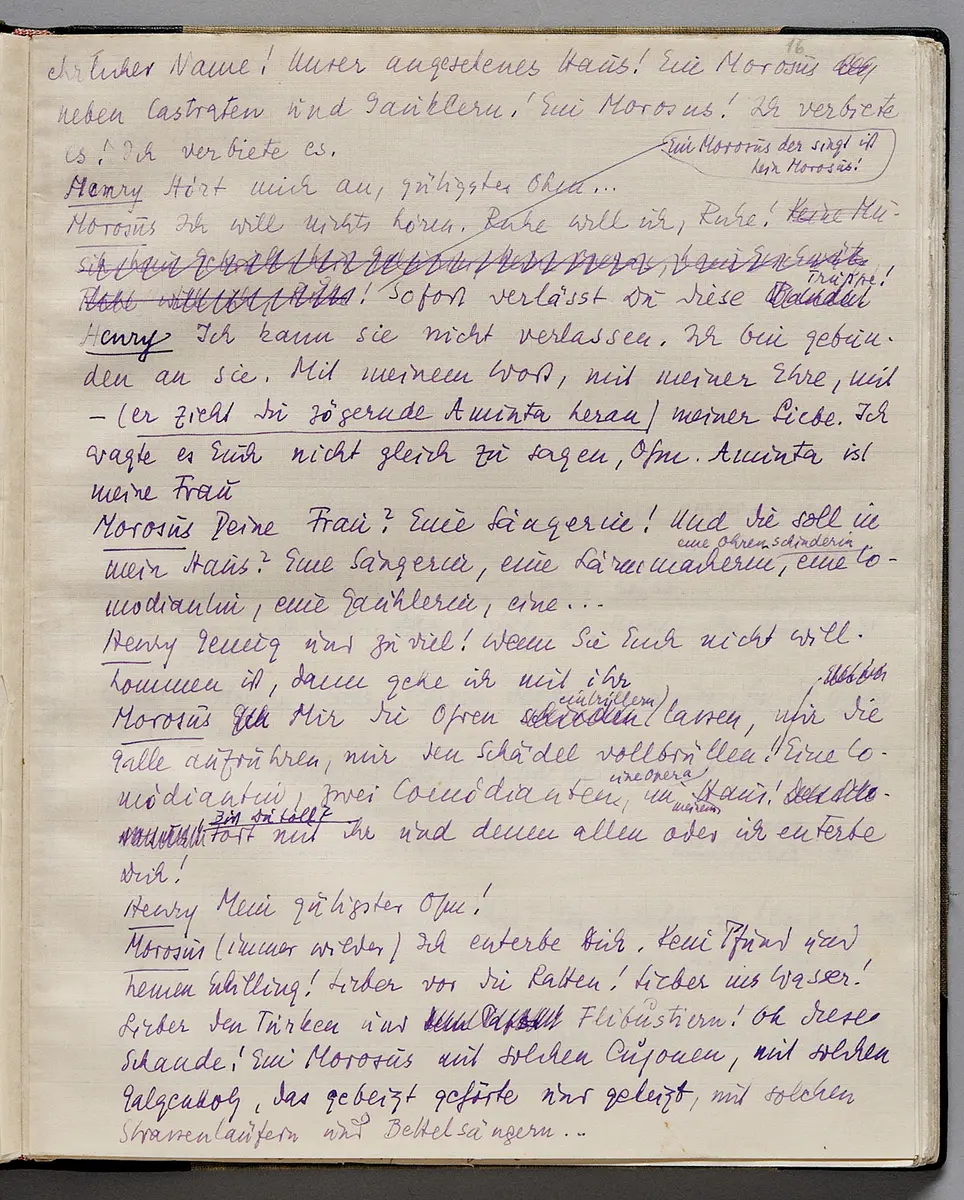 16
ehrlicher Name! Unser angesehenes Haus! Ein Morosus
neben Castraten und Gauklern! Ein Morosus! Ich verbiete
es! Ich verbiete es.
Ein Morosus der singt ist
kein Morosus!
Henry Hört mich an, gütigster Ohm...
Morosus Ich will nichts hören. Ruhe will ich, Ruhe! Keine Mu-
sik
Truppe!
! Sofort verlässt Du diese Banden
Henry Ich kann sie nicht verlassen. Ich bin gebun-
den an sie. Mit meinem Wort, mit meiner Ehre, mit
– (er zieht die zögernde Aminta heran) meiner Liebe. Ich
wagte es Euch nicht gleich zu sagen, Ohm. Aminta ist
meine Frau
Morosus Deine Frau? Eine Sängerin! Und die soll in
eine Ohrenschinderin
mein Haus? Eine Sängerin, eine Lärmmacherin, eine Co-
mödiantin, eine Gauklerin, eine...
Henry Genug und zu viel! Wenn Sie Euch nicht will-
kommen ist, dann gehe ich mit ihr
eintrillern
Morosus Mir die Ohren schinden lassen, mir die
Galle aufrühren, mir den Schädel vollbrüllen! Eine Co-
eine Opera
mödiantin, zwei Comödianten, in Haus!
meinem
Bist Du toll?
Fort mit ihr und denen allen oder ich enterbe
Dich!
Henry Mein gütigster Ohm!
Morosus (immer wilder) Ich enterbe Dich. Kein Pfund und
keinen Schilling! Lieber vor die Ratten! Lieber ins Wasser!
Lieber den Türken und Flibustiern! Oh diese
Schande! Ein Morosus mit solchen Cujonen, mit solchen
Galgenholz, das gebeizt gehörte und geleizt, mit solchen
Strassenläufern und Bettelsängern...